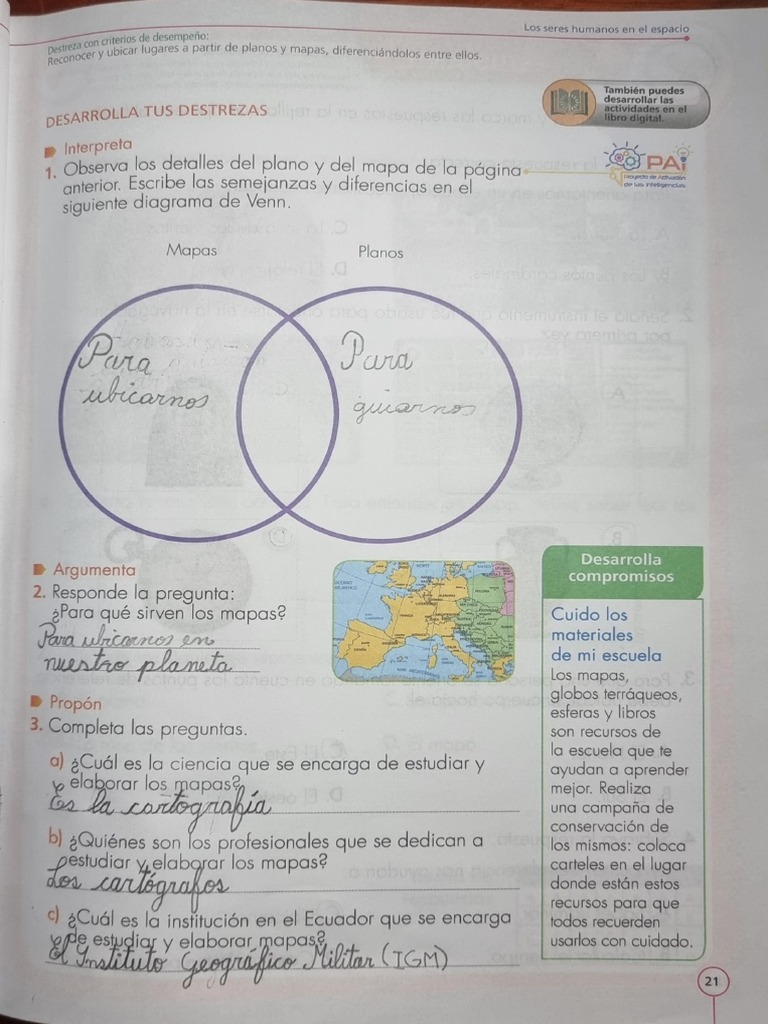 Los seres humanos en el espacio
Destreza con criterios de desempeño:
Reconocer y ubicar lugares a partir de planos y mapas, diferenciándolos entre ellos.
También puedes
desarrollar las
actividades en el
libro digital.
DESARROLLA TUS DESTREZAS
Interpreta
1. Observa los detalles del plano y del mapa de la página
anterior. Escribe las semejanzas y diferencias en el
siguiente diagrama de Venn.
PAi
Proyecto de Activación
de las Inteligencias
Mapas
Planos
Para
ubicarnos
Para
guiarnos
Argumenta
2. Responde la pregunta:
¿Para qué sirven los mapas?
Para ubicarnos en
nuestro planeta
Propón
3. Completa las preguntas.
a) ¿Cuál es la ciencia que se encarga de estudiar y
elaborar los mapas?
Es la cartografía
b) ¿Quiénes son los profesionales que se dedican a
estudiar y elaborar los mapas?
Los cartógrafos
c) ¿Cuál es la institución en el Ecuador que se encarga
de estudiar y elaborar mapas?
El Instituto Geográfico Militar (IGM)
Desarrolla
compromisos
Cuido los
materiales
de mi escuela
Los mapas,
globos terráqueos,
esferas y libros
son recursos de
la escuela que te
ayudan a aprender
mejor. Realiza
una campaña de
conservación de
los mismos: coloca
carteles en el lugar
donde están estos
recursos para que
todos recuerden
usarlos con cuidado.
21